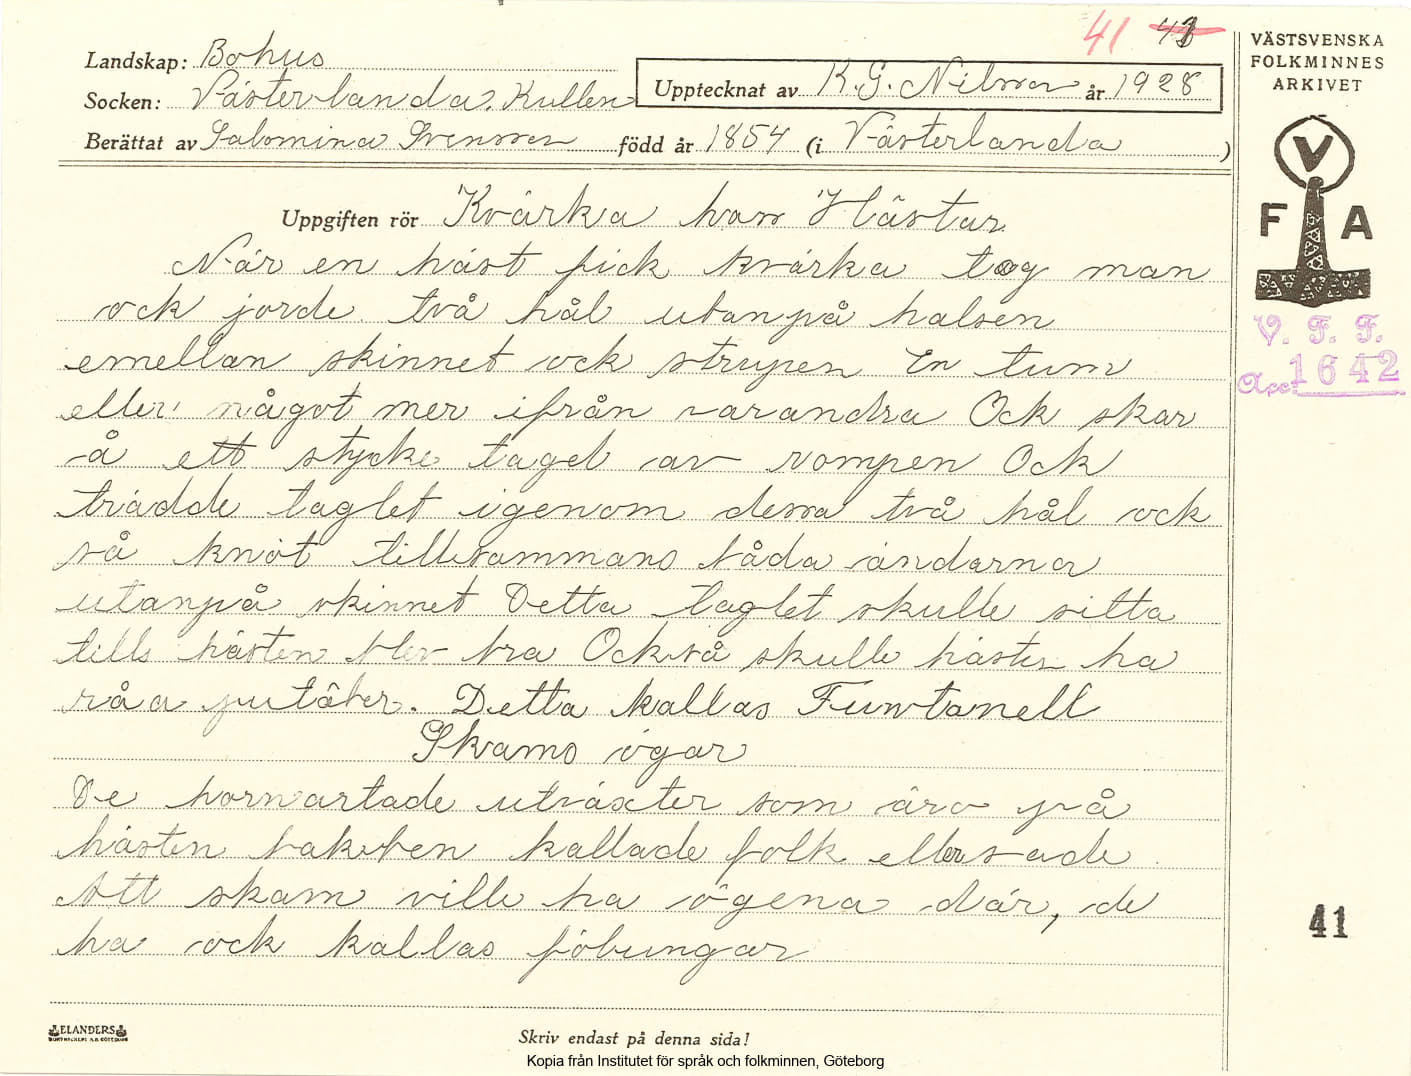 41 43
Landskap: Bohus
Socken: Västerlanda. Kullen
Upptecknat av K. G. Nilsson år 1928
Berättat av Salomina Svensson född år 1854 (i Västerlanda )
VÄSTSVENSKA
FOLKMINNES
ARKIVET
V
F A
V. F. F.
Acc: 1642
Uppgiften rör Kvärka hos Hästar
När en häst fick kvärka tog man
ock jorde två hål utanpå halsen
emellan skinnet ock strupen En tum
eller något mer ifrån varandra Ock skar
så ett stycke tagel av rompen Ock
trädde taglet igenom dessa två hål ock
så knöt tillsammans båda ändarna
utanpå skinnet Detta taglet skulle sitta
tills hästen blev bra Också skulle hästen ha
råa putäter. Detta kallas Funtanell
Skams ögar
De hornartade utväxter som äro på
hästen bakben kallade folk eller sade
Att skam ville ha ögena där, de
ha ock kallas föbungar
41
ELANDERS
Skriv endast på denna sida!
Kopia från Institutet för språk och folkminnen, Göteborg